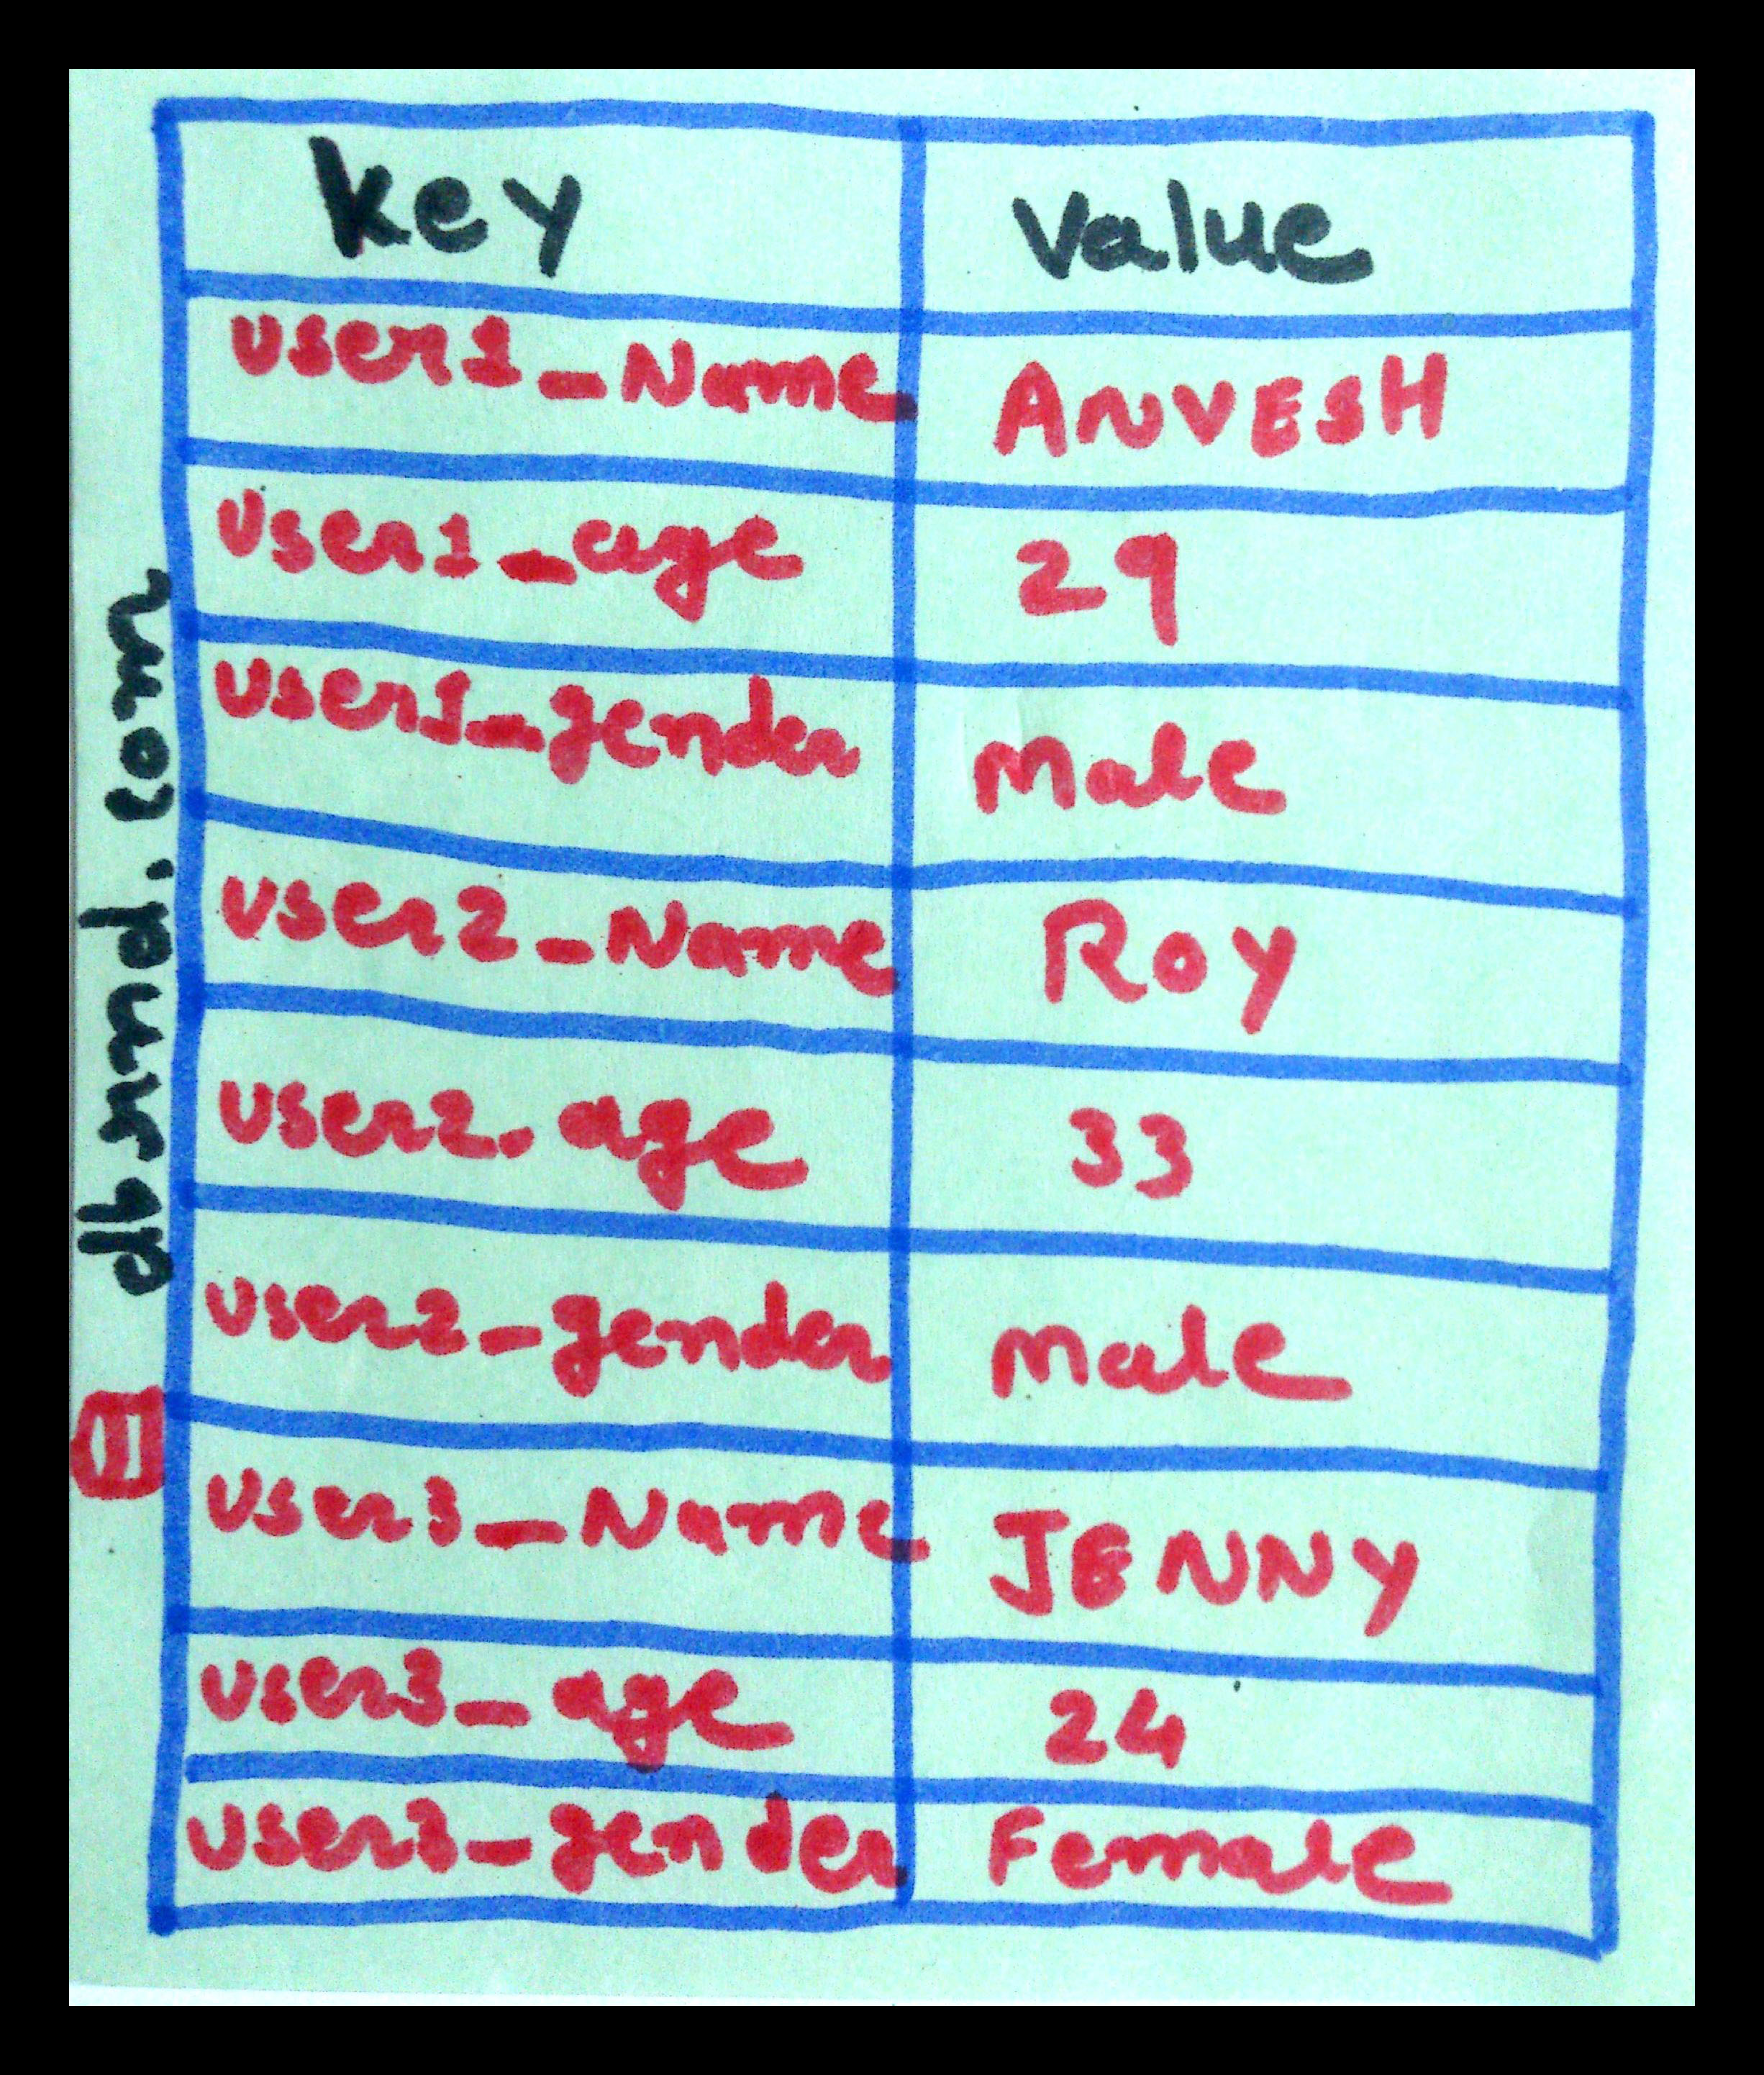 key Value
user1_Name ANVESH
user1_age 29
user1_gender Male
user2_Name ROY
user2. age 33
user2_gender Male
user3_Name JENNY
user3_age 24
user3_gender Female
dbrnd.com